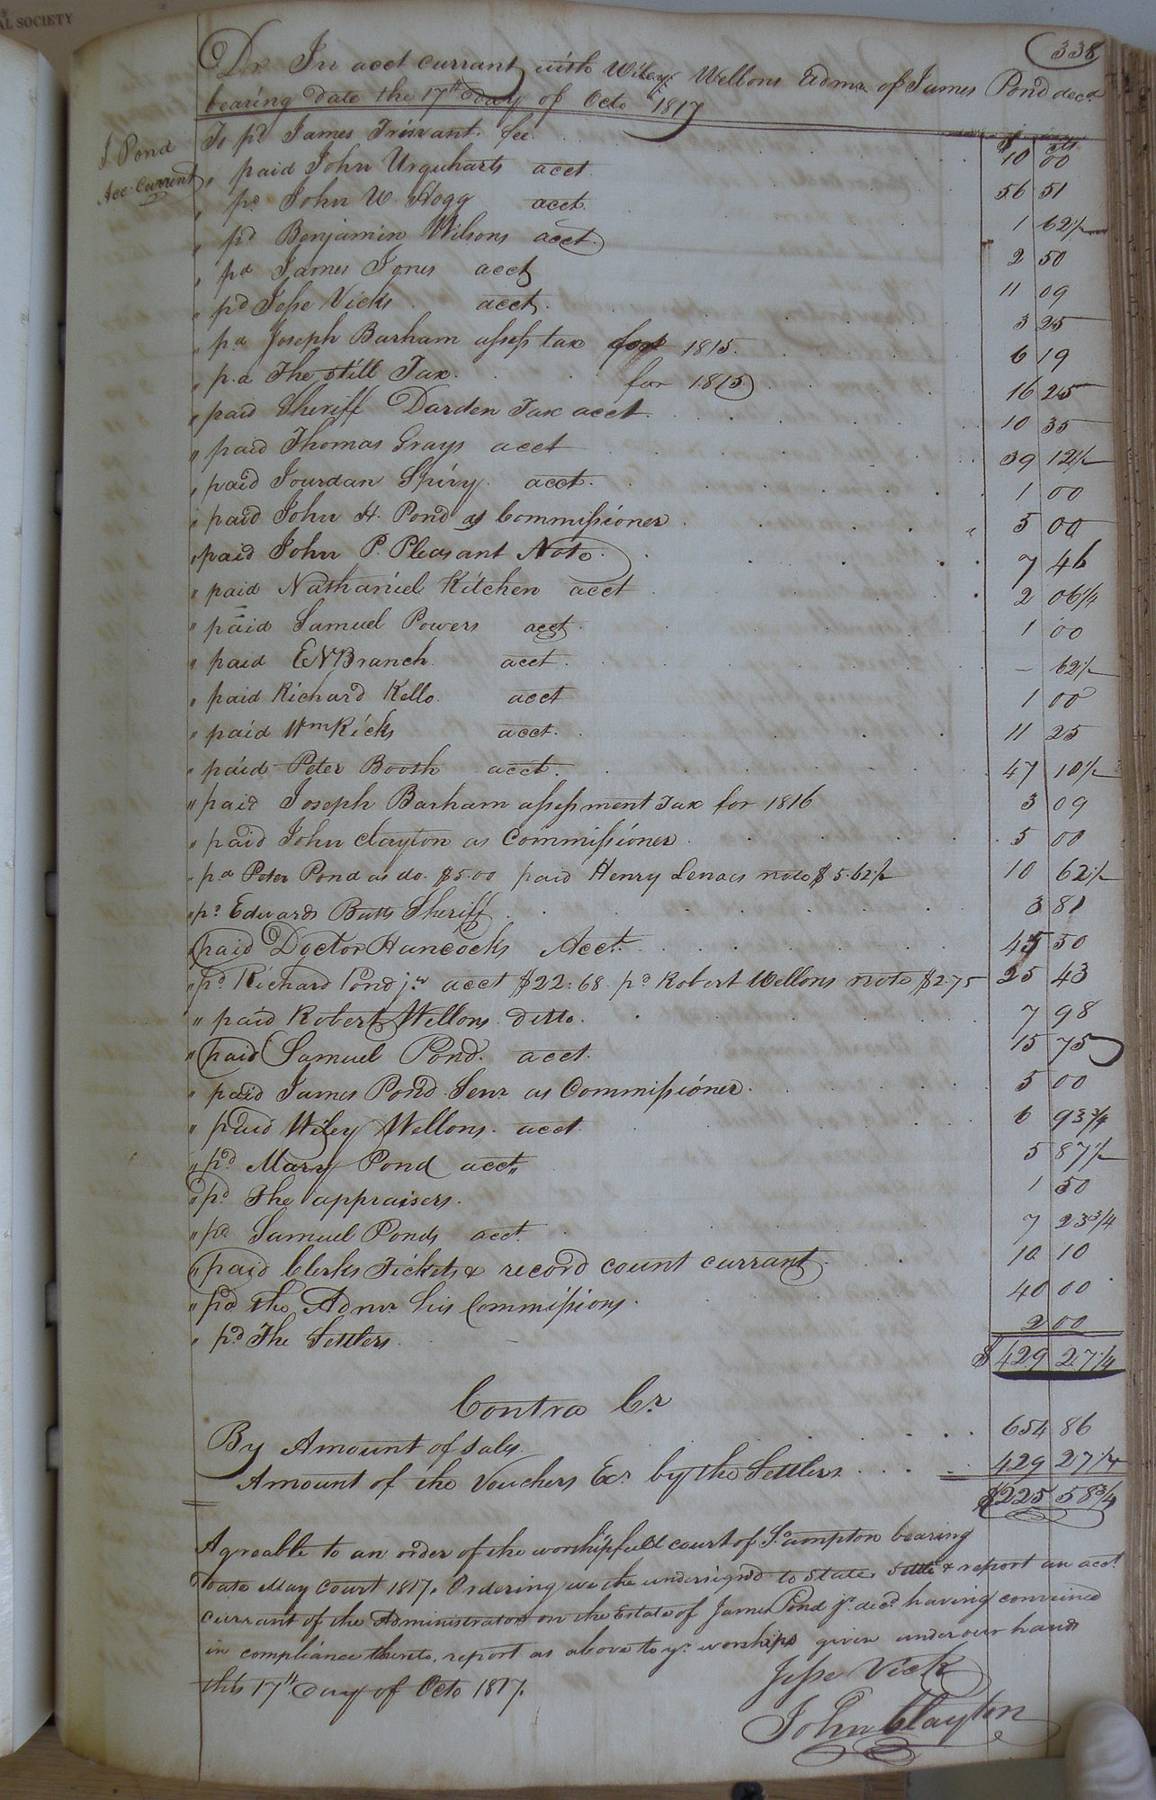 AL SOCIETY
338
Dr In acct currant with Wiley Wellons Admr. of James Pond decd
bearing date the 17th day of Octo 1817
J. Pond
Acc. Current
$ cts
To pd James Trizvant fee 10 00
" paid John Urquharts acct. 56 51
" pd John W. Hogg acct. 1 62½
" pd Benjamin Wilsons acct. 2 50
" pd James Jones acct 11 09
" pd Jesse Vicks acct. 3 25
" pd Joseph Barham assess tax for 1815. 6 19
" pd The still Tax. for 1815 16 25
" paid Sheriff Darden Tax acct 10 35
" paid Thomas Grays acct 39 12½
" paid Jourdan Spivy acct. 1 00
" paid John H. Pond as Commissioner 5 00
" paid John P. Pleasant Note 7 46
" paid Nathaniel Kitchen acct 2 06¼
" paid Samuel Powers acct. 1 00
" paid E N Branch acct. – 62½
" paid Richard Kello. acct 1 00
" paid Wm Ricks acct. 11 25
" paid Peter Booth acct. 47 10½
" paid Joseph Barham assessment Tax for 1816 3 09
" paid John Clayton as Commissioner 5 00
" pd Peter Pond as do. $5.00 paid Henry note $5.62½ 10 62½
" pd Edwards Butts Sheriff 3 81
paid Doctor Hancocks Acct. 45 50
" pd Richard Pond jr acct $22.68 pd Robert Wellons note $2.75 25 43
" paid Robert Wellons ditto. 7 98
" paid Samuel Pond. acct. 15 75
" paid James Pond Senr as Commissioner. 5 00
" paid Wiley Wellons. acct 6 93¾
" pd Mary Pond acct" 5 87½
" pd The appraisers. 1 50
" pd Samuel Ponds acct. 7 23¾
" paid Clerks Tickets & record count currant 10 10
" pd the Admr his Commissions. 40 00
" pd The Settlers. 2 00
$ 429 27¼
Contra Cr
By Amount of Sales 654 86
Amount of the Vouchers Ec. by the Settlers 429 27¼
$225 58¾
Agreable to an order of the worshipfull court of So ampton bearing
date May Court 1817. Ordering we the undersign'd to State Settle & report an acct
currant of the Administrator on the Estate of James Pond jr. decd having convined
in compliance thereto, report as above to yr. worships given under our hands
this 17th Day of Octo 1817.
Jesse Vick
John Clayton